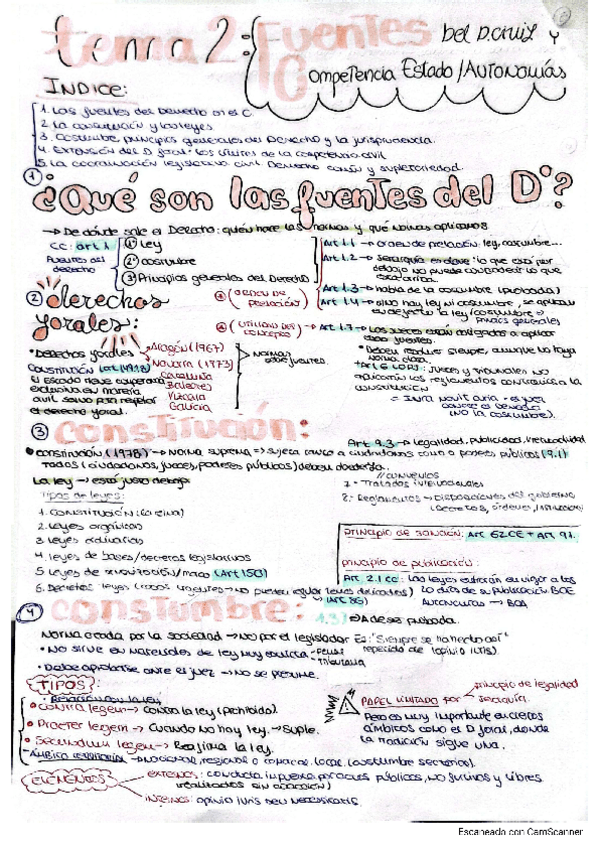 tema 2: Fuentes del D.civil y
Competencia Estado/Autonomías
INDICE:
1. Las fuentes del Derecho en el C.
2. La constitución y las leyes
3. Costumbre, principios generales del Derecho y la jurisprudencia.
4. Extensión del D foral: los límites de la competencia civil
5. La coordinación legislativa civil. Derecho común y supletoriedad.
1
¿Qué son las fuentes del Dº?
→ De dónde sale el Derecho: quién hace las normas y qué normas aplicamos
CC: art 1
Fuentes del derecho
1º Ley
2º costumbre
3º Principios generales del Derecho
Art 1.1 → orden de prelación: ley, costumbre...
Art 1.2 → jerarquía en clave: lo que está por
debajo no puede contradecir lo que
está arriba.
Art 1.3 → habla de la costumbre (probada)
Art 1.4 → si no hay ley ni costumbre, se aplican
principios generales
(ORDEN DE PRELACIÓN)
Art 1.7 → Los jueces están obligados a aplicar
esas fuentes.
• Deben resolver siempre, aunque no haya
norma clara.
• Art 6 LOPJ: Jueces y tribunales no
aplicarán los reglamentos contrarios a la
constitución
(no la costumbre).
2 derechos
forales:
• Derechos forales
Aragón (1967)
Navarra (1973)
Cataluña
Baleares
Vizcaya
Galicia
Normas
CONSTITUCIÓN (art 149.1.8)
El estado tiene competencia
exclusiva en materia
civil salvo para respetar
el derecho foral.
3 constitución:
Art 9.3 → legalidad, publicidad, irretroactividad
• Constitución (1978) → Norma suprema → sujeta tanto a ciudadanos como a poderes públicos (9.1)
Todos (ciudadanos, jueces, poderes públicos) deben
La ley → está justo debajo
Tipos de leyes:
1. CONSTITUCIÓN
2. Leyes orgánicas
3. Leyes ordinarias
4. Leyes de bases/decretos legislativos
5. Leyes de armonización/marco (Art 150)
6. Decretos leyes (casos urgentes → no pueden regular leyes delicadas)
→ (Art 86)
// convenios
7.- Tratados internacionales
8.- Reglamentos → Disposiciones del gobierno
(Decretos, órdenes,
principio de sanción: Art 62CE + Art 91.
principio de publicación:
Art 2.1 cc: Las leyes entrarán en vigor a los
20 días de su publicación BOE
Autonómicas → BOA
4 constumbre:
1.3) → A de ser probada.
Norma creada por la sociedad → No por el legislador Ej: "Siempre se ha hecho así"
repetido de (opinio iuris).
• No sirve en materiales de ley muy estricta
- Penal
- Tributaria
• Debe aprobarse ante el juez → No se presume.
TIPOS:
• Relación con la ley
• Contra legem → Contra la ley (prohibido).
• Praeter legem → Cuando no hay ley → Suple.
• Secundum legem → Reafirma la ley.
- Ámbito territorial → nacional, regional o comarcal, local.
PAPEL LIMITADO por
principio de legalidad
jerarquía.
Pero es muy importante en ciertos
ámbitos como el D foral, donde
la tradición sigue viva.
ELEMENTOS
externos: conducta
internos: opinio iuris seu necessitatis.
Escaneado con CamScanner